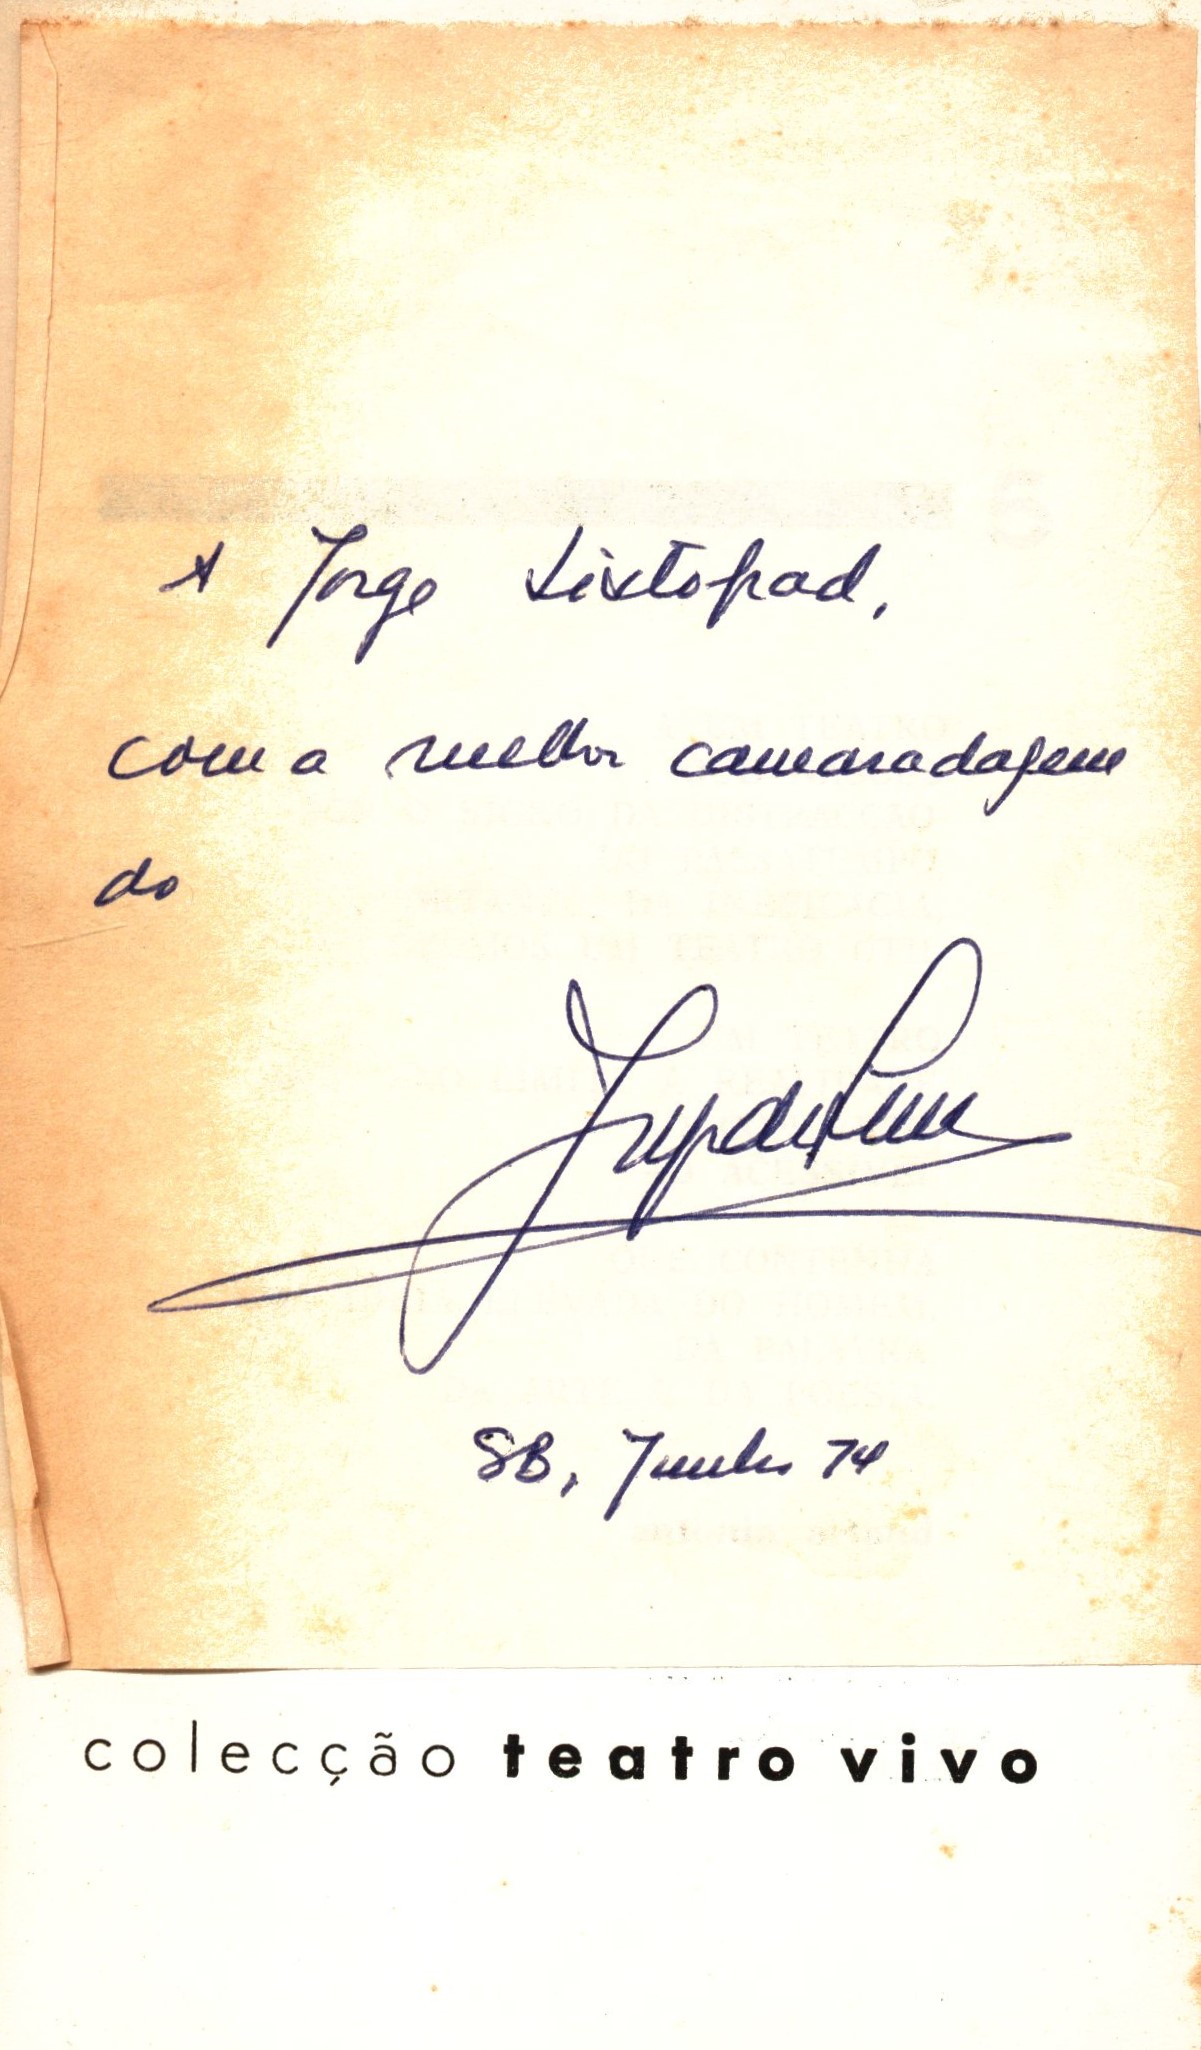 A Jorge Listopad,
com a melhor camaradagem
do
SB, Junho 74
colecção teatro vivo